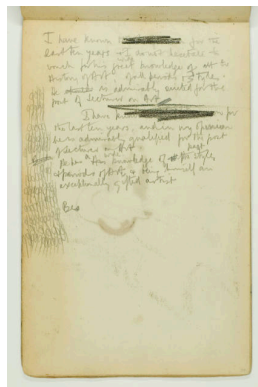 I have known for the
last ten years & I do not hesitate to
vouch for his great knowledge of art & the
History of Art of all periods & styles.
He is admirably suited for the
post of Lecturer on Art
I have for
the last ten years, and in my opinion
he is admirably qualified for the post
of Lecturer on Art
He has a knowledge of the styles
& periods of Art & being himself an
exceptionally gifted artist